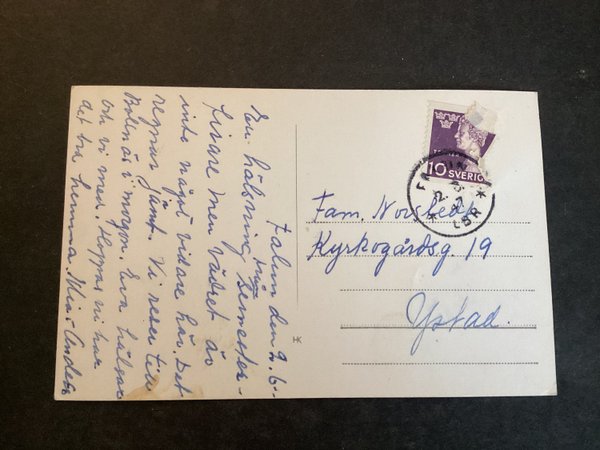 Falun den 2.6.
En hälsning från Semester-
firare men vädret är
inte något vidare här. Det
regnar jämt. Vi reser till
i morgon. Eva hälsar
och vi med. Hoppas ni har
det bra hemma. Mia - Anders
10 SVERIGE
Fam. Norstedt
Kyrkogårdsg. 19
Ystad.
LBR
HK